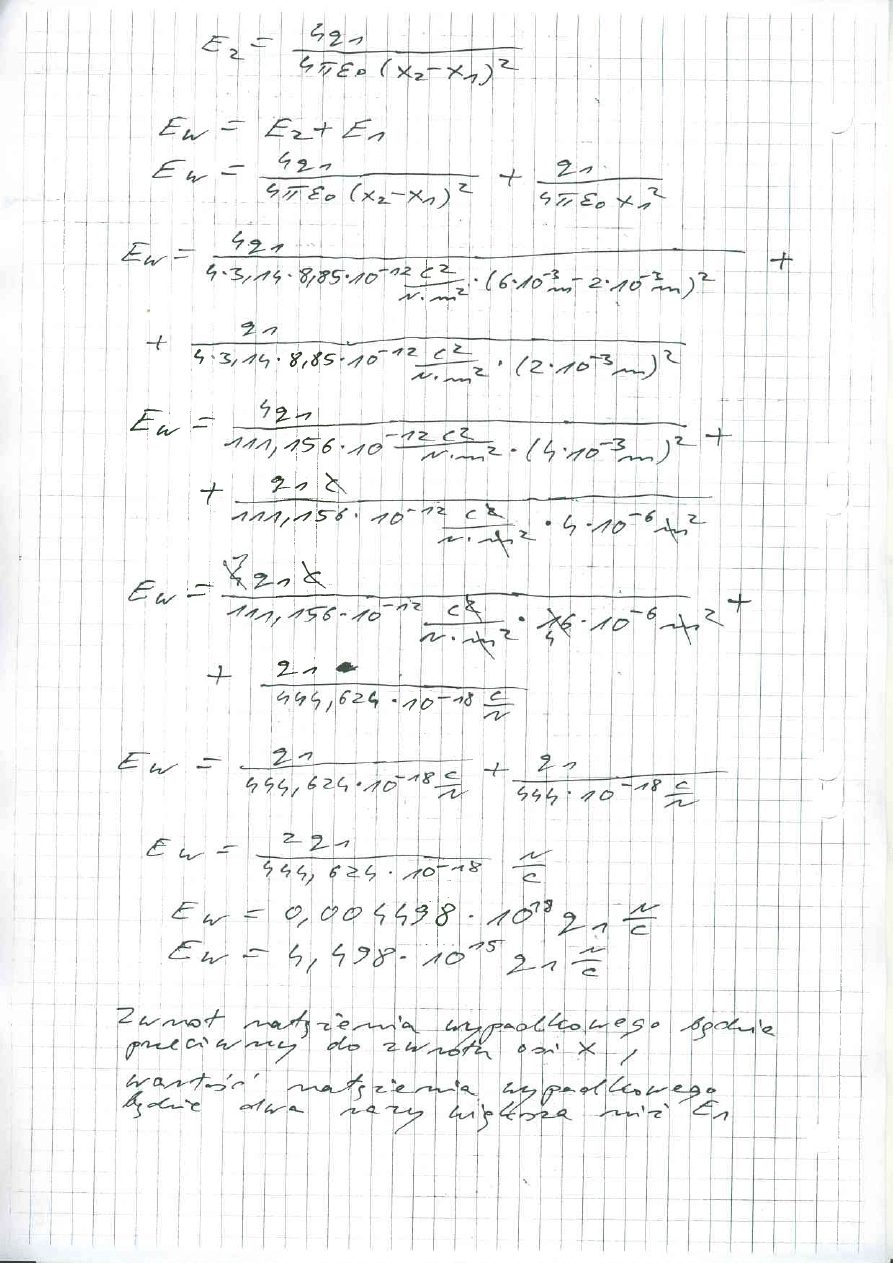 E₂ = 4q₁ / 4πε₀ (x₂ - x₁)²
E_w = E₂ + E₁
E_w = 4q₁ / 4πε₀ (x₂ - x₁)² + q₁ / 4πε₀ x₁²
E_w = 4q₁ / 4·3,14·8,85·10⁻¹² C²/N·m² · (6·10⁻³m - 2·10⁻³m)² +
+ q₁ / 4·3,14·8,85·10⁻¹² C²/N·m² · (2·10⁻³m)²
E_w = 4q₁ / 111,156·10⁻¹² C²/N·m² · (4·10⁻³m)² +
+ q₁ C / 111,156·10⁻¹² C²/N·m² · 4·10⁻⁶ m²
E_w = 4 1 q₁ C / 111,156·10⁻¹² C²/N·m² · 16 4 ·10⁻⁶ m² +
+ q₁ / 444,624·10⁻¹⁸ C/N
E_w = q₁ / 444,624·10⁻¹⁸ C/N + q₁ / 444·10⁻¹⁸ C/N
E_w = 2q₁ / 444,624·10⁻¹⁸ N/C
E_w = 0,004498·10¹⁸ q₁ N/C
E_w = 4,498·10¹⁵ q₁ N/C
Zwrot natężenia wypadkowego będzie
przeciwny do zwrotu osi X,
wartość natężenia wypadkowego
będzie dwa razy większa niż E₁